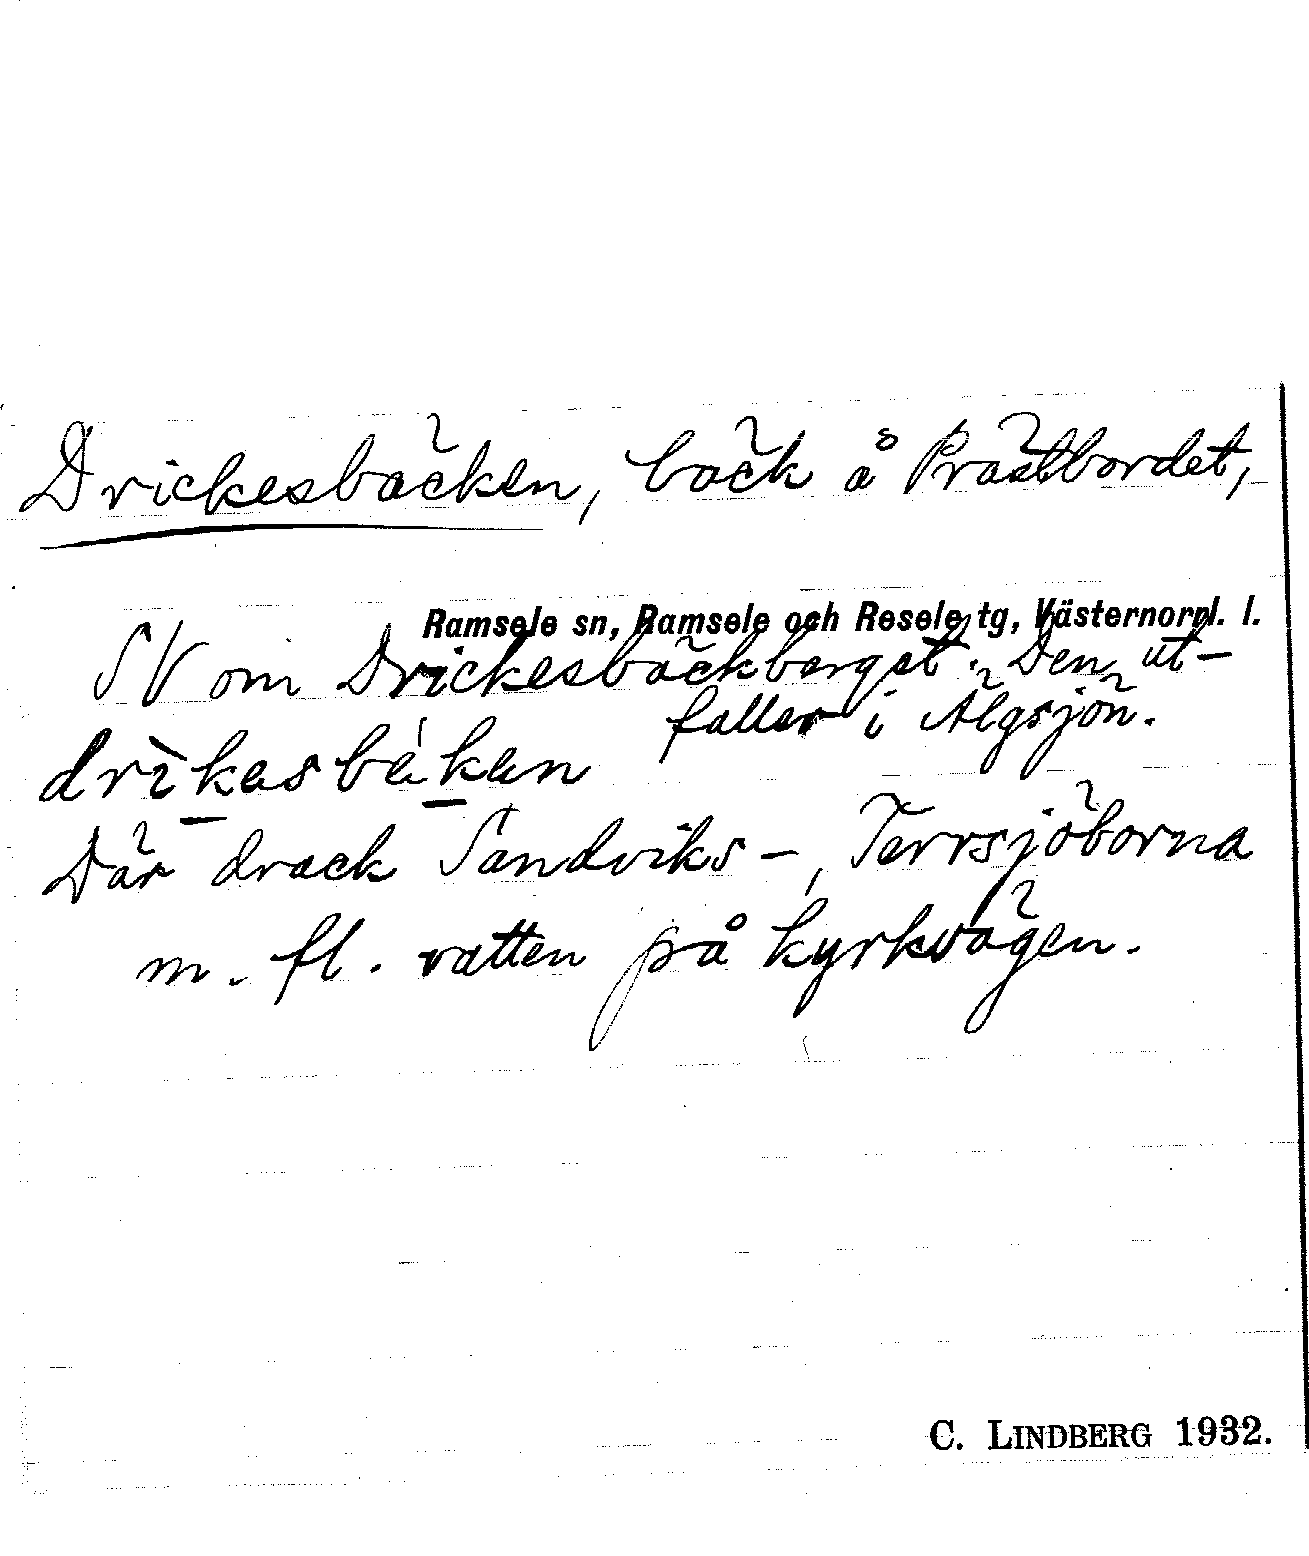 Drickesbäcken, bäck å Prästbordet,
Ramsele sn, Ramsele och Resele tg, Västernorrl. l.
SV om Drickesbäckberget. Den ut-
faller i Älgsjön.
drìkasbèkan
Där drack Sandviks-, Terrsjöborna
m. fl. vatten på kyrkvägen.
C. LINDBERG 1932.